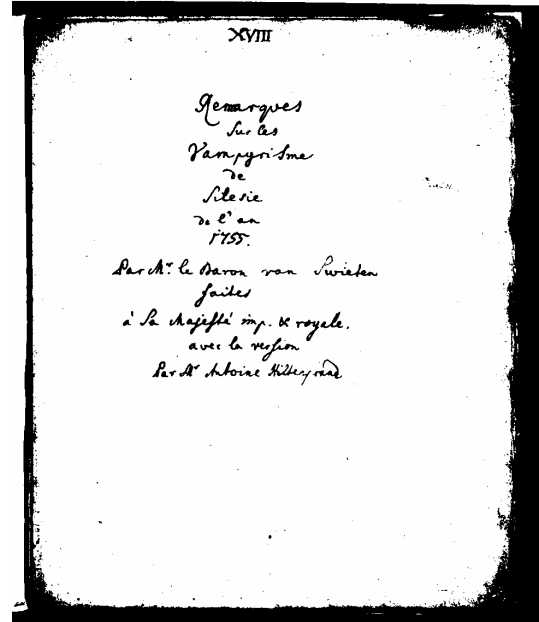 XVIII
Remarques
sur les
Vampyrisme
de
Silesie
de l'an
1755.
Par Mr. le Baron van Swieten
faites
à Sa Majesté imp. & royale.
avec la version
Par Mr Antoine